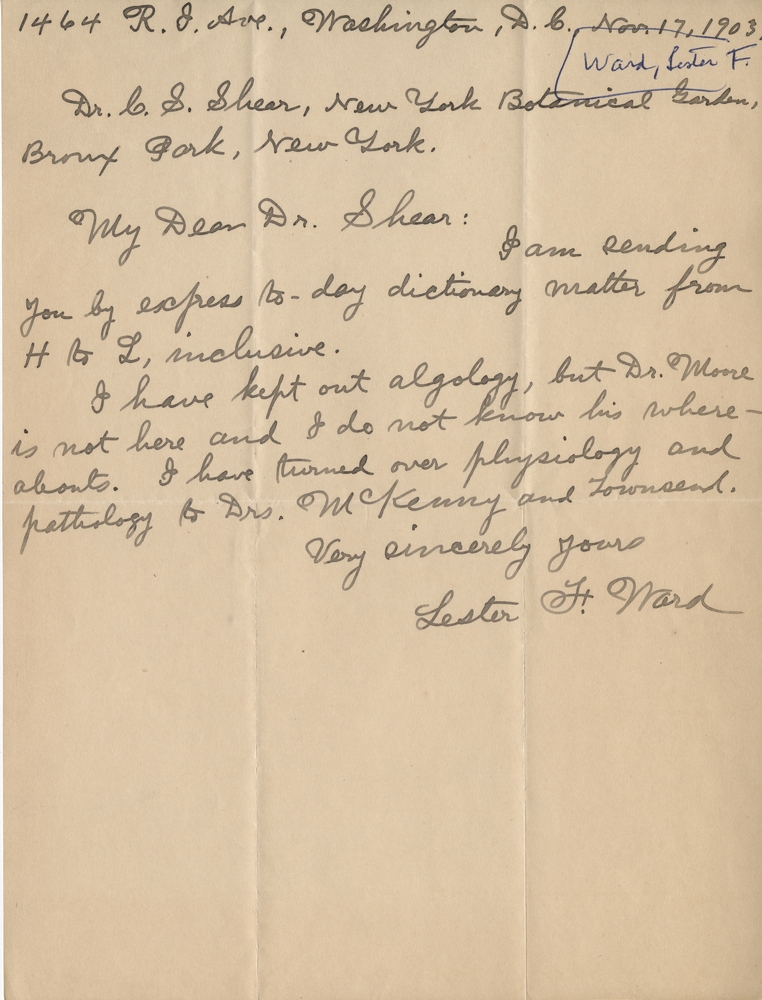 1464 R. I. Ave., Washington, D. C., Nov. 17, 1903.
Ward, Lester F.
Dr. C. S. Shear, New York Botanical Garden,
Bronx Park, New York.
My Dear Dr. Shear:
I am sending
you by express to-day dictionary matter from
H to L, inclusive.
I have kept out algology, but Dr. Moore
is not here and I do not know his where-
abouts. I have turned over physiology and
pathology to Drs. McKenny and Townsend.
Very sincerely yours
Lester F. Ward